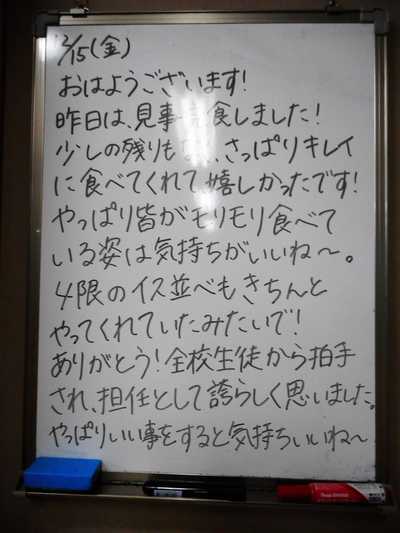 12/15(金)
おはようございます!
昨日は、見事完食しました!
少しの残りもなく、さっぱりキレイ
に食べてくれて嬉しかったです!
やっぱり皆がモリモリ食べて
いる姿は気持ちがいいね〜。
4限のイス並べもきちんと
やってくれていたみたいで!
ありがとう!全校生徒から拍手
され、担任として誇らしく思いました。
やっぱりいい事をすると気持ちいいね〜